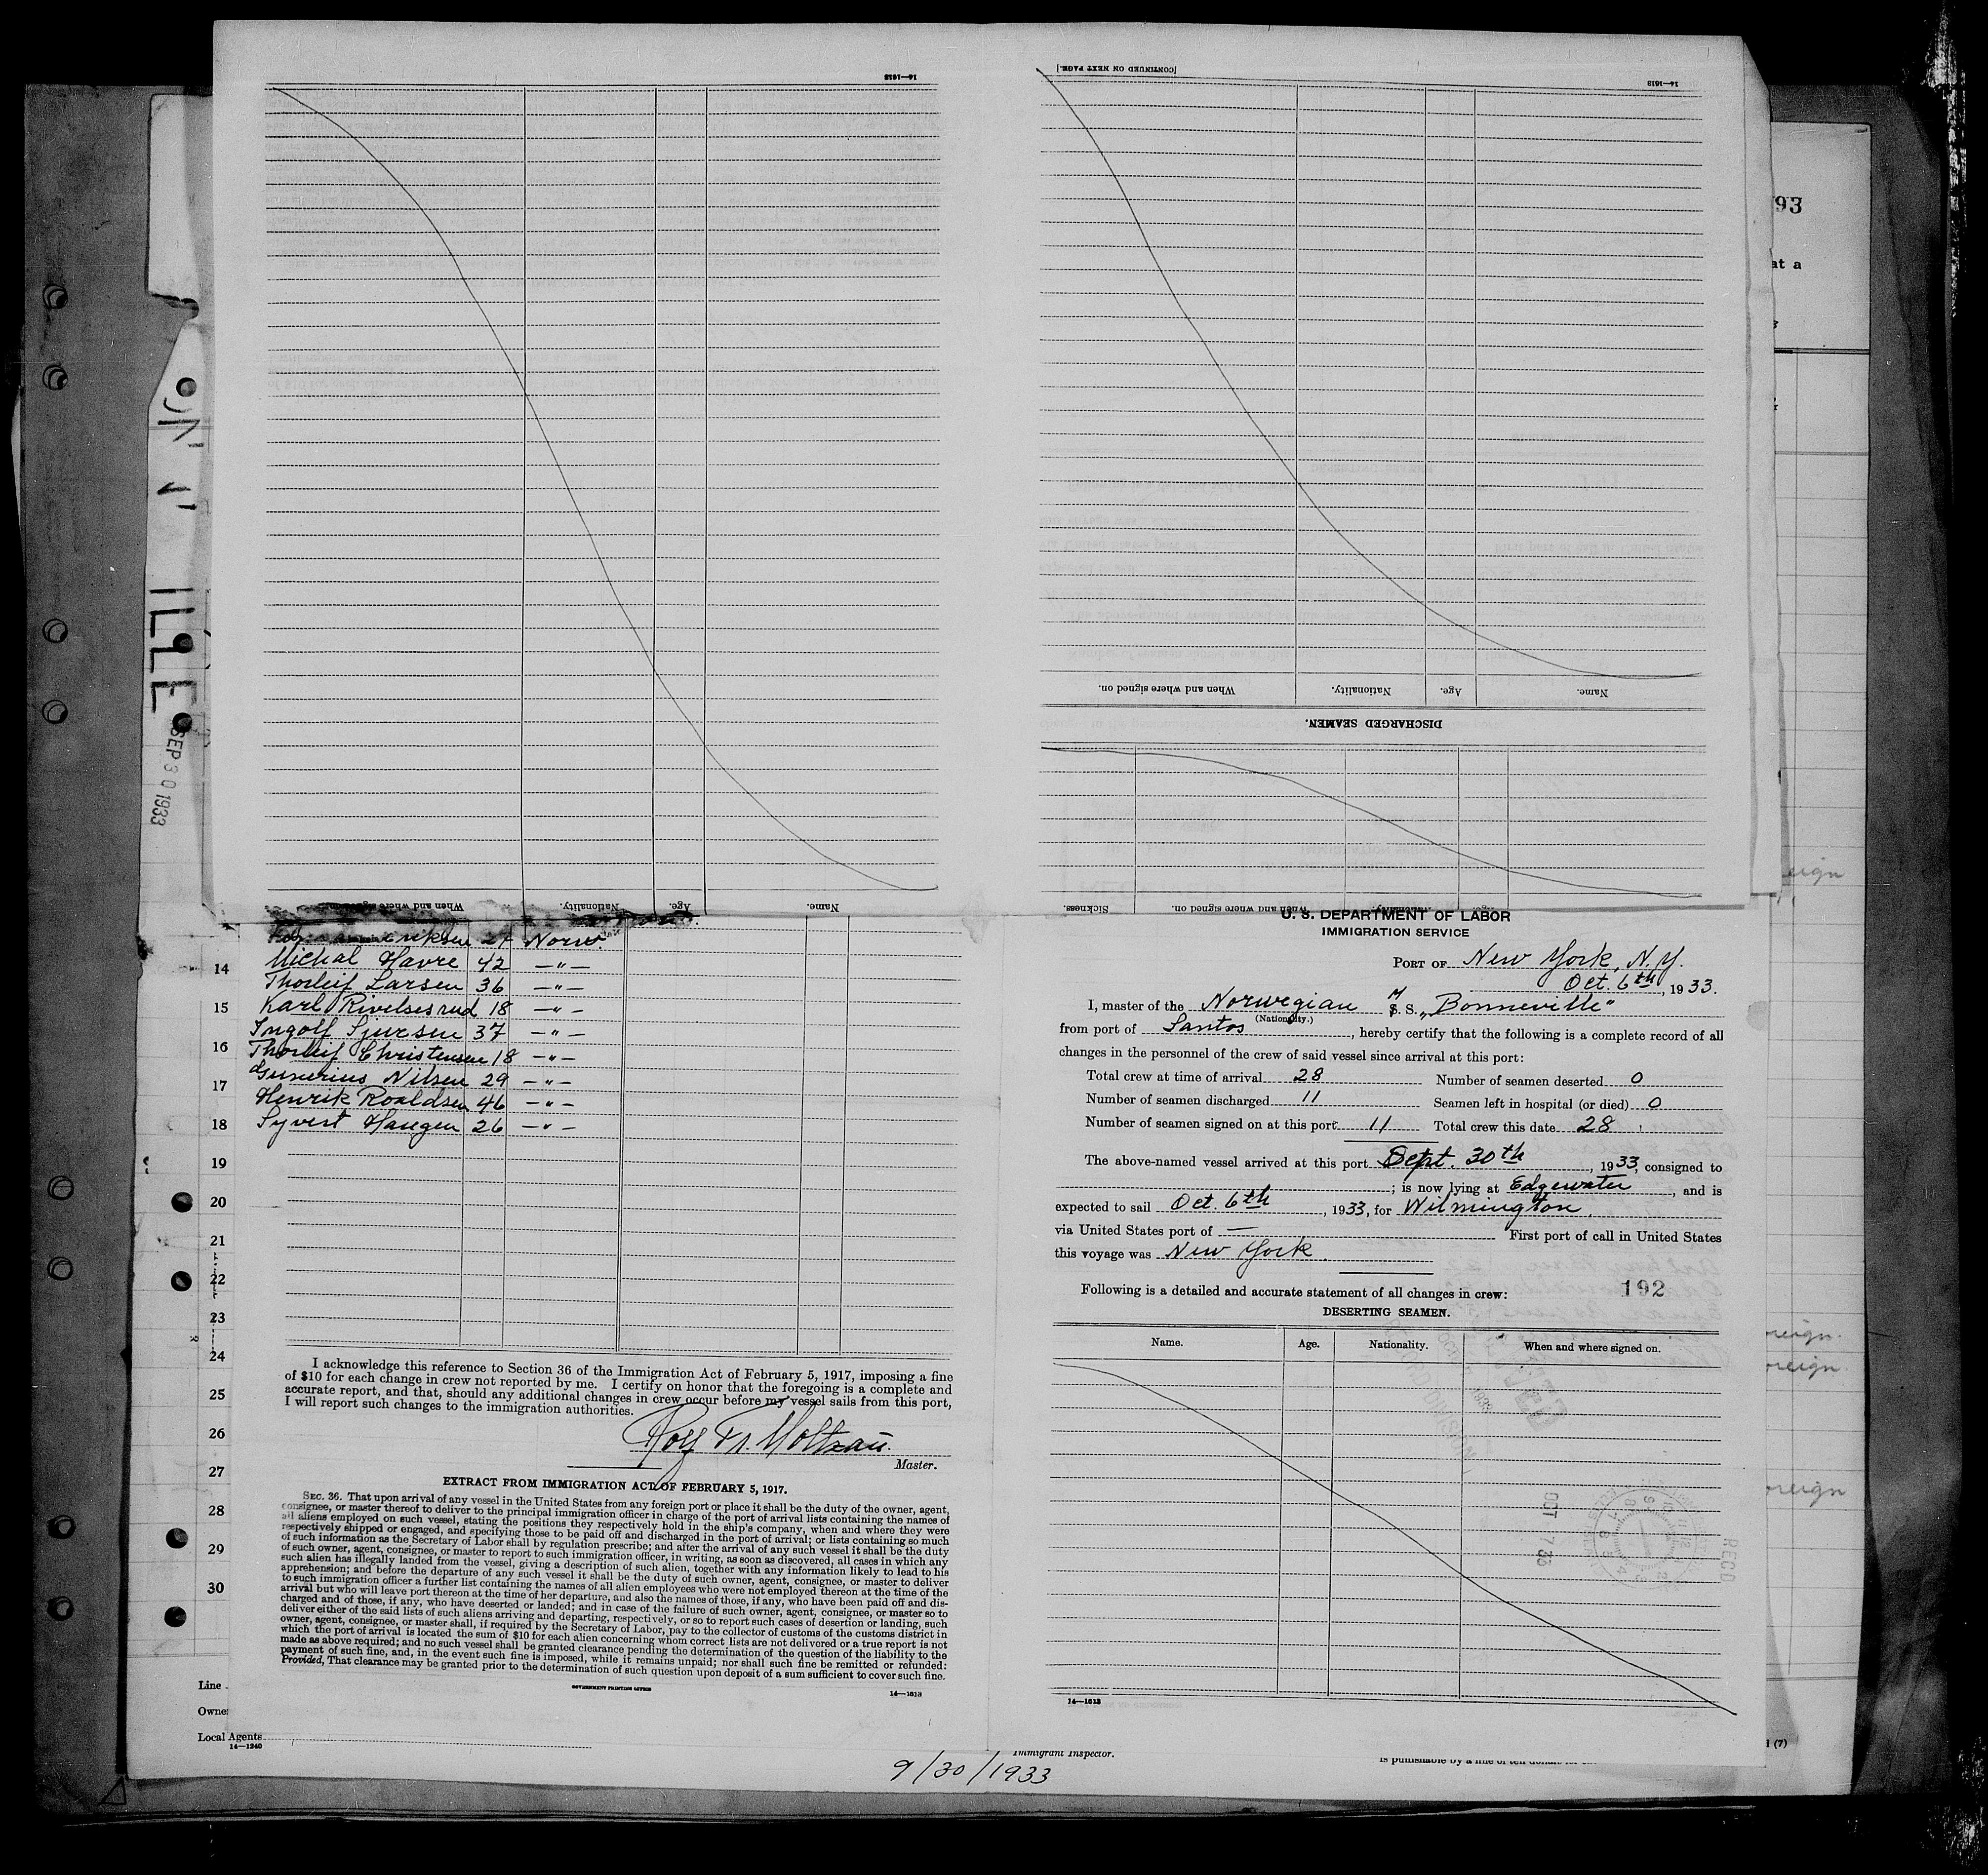 14—1613
[CONTINUED ON NEXT PAGE.]
14—1613
When and where signed on. Nationality. Age. Name.
DISCHARGED SEAMEN.
Sickness. When and where signed on. Nationality. Age.
When and where signed on. Nationality. Age. Name.
93
at a
ON
ILLE
SEP 30 1933
Eriksen 27 Norw.
Michal Havre 42 —"—
Thorleif Larsen 36 —"—
Karl Rivelsesrud 18 —"—
Ingolf Sjursen 37 —"—
Thorleif Christensen 18 —"—
Gunerius Nilsen 29 —"—
Henrik Roaldsen 46 —"—
Syvert Haugen 26 —"—
14
15
16
17
18
19
20
21
22
23
24
25
26
27
28
29
30
I acknowledge this reference to Section 36 of the Immigration Act of February 5, 1917, imposing a fine
of $10 for each change in crew not reported by me. I certify on honor that the foregoing is a complete and
accurate report, and that, should any additional changes in crew occur before my vessel sails from this port,
I will report such changes to the immigration authorities.
Moltzau
Master.
EXTRACT FROM IMMIGRATION ACT OF FEBRUARY 5, 1917.
SEC. 36. That upon arrival of any vessel in the United States from any foreign port or place it shall be the duty of the owner, agent,
consignee, or master thereof to deliver to the principal immigration officer in charge of the port of arrival lists containing the names of
all aliens employed on such vessel, stating the positions they respectively hold in the ship's company, when and where they were
respectively shipped or engaged, and specifying those to be paid off and discharged in the port of arrival; or lists containing so much
of such information as the Secretary of Labor shall by regulation prescribe; and after the arrival of any such vessel it shall be the duty
of such owner, agent, consignee, or master to report to such immigration officer, in writing, as soon as discovered, all cases in which any
such alien has illegally landed from the vessel, giving a description of such alien, together with any information likely to lead to his
apprehension; and before the departure of any such vessel it shall be the duty of such owner, agent, consignee, or master to deliver
to such immigration officer a further list containing the names of all alien employees who were not employed thereon at the time of the
arrival but who will leave port thereon at the time of her departure, and also the names of those, if any, who have been paid off and dis-
charged and of those, if any, who have deserted or landed; and in case of the failure of such owner, agent, consignee, or master so to
deliver either of the said lists of such aliens arriving and departing, respectively, or so to report such cases of desertion or landing, such
owner, agent, consignee, or master shall, if required by the Secretary of Labor, pay to the collector of customs of the customs district in
which the port of arrival is located the sum of $10 for each alien concerning whom correct lists are not delivered or a true report is not
made as above required; and no such vessel shall be granted clearance pending the determination of the question of the liability to the
payment of such fine, and, in the event such fine is imposed, while it remains unpaid; nor shall such fine be remitted or refunded:
Provided, That clearance may be granted prior to the determination of such question upon deposit of a sum sufficient to cover such fine.
GOVERNMENT PRINTING OFFICE
14—1613
Line
Owner
Local Agents
14—1240
U. S. DEPARTMENT OF LABOR
IMMIGRATION SERVICE
PORT OF New York, N.Y.
Oct. 6th, 1933.
I, master of the Norwegian M S. „Bonneville"
(Nationality.)
from port of Santos, hereby certify that the following is a complete record of all
changes in the personnel of the crew of said vessel since arrival at this port:
Total crew at time of arrival 28 Number of seamen deserted 0
Number of seamen discharged 11 Seamen left in hospital (or died) 0
Number of seamen signed on at this port 11 Total crew this date 28
The above-named vessel arrived at this port Sept. 30th, 1933, consigned to
; is now lying at Edgewater, and is
expected to sail Oct. 6th, 1933, for Wilmington.
via United States port of — First port of call in United States
this voyage was New York.
Following is a detailed and accurate statement of all changes in crew: 192
DESERTING SEAMEN.
Name. Age. Nationality. When and where signed on.
OCT 7 33
REC'D
14—1613
eign
reign
reign
oreign
Immigrant Inspector.
is punishable by a fine of ten dollars for
(7)
9/30/1933